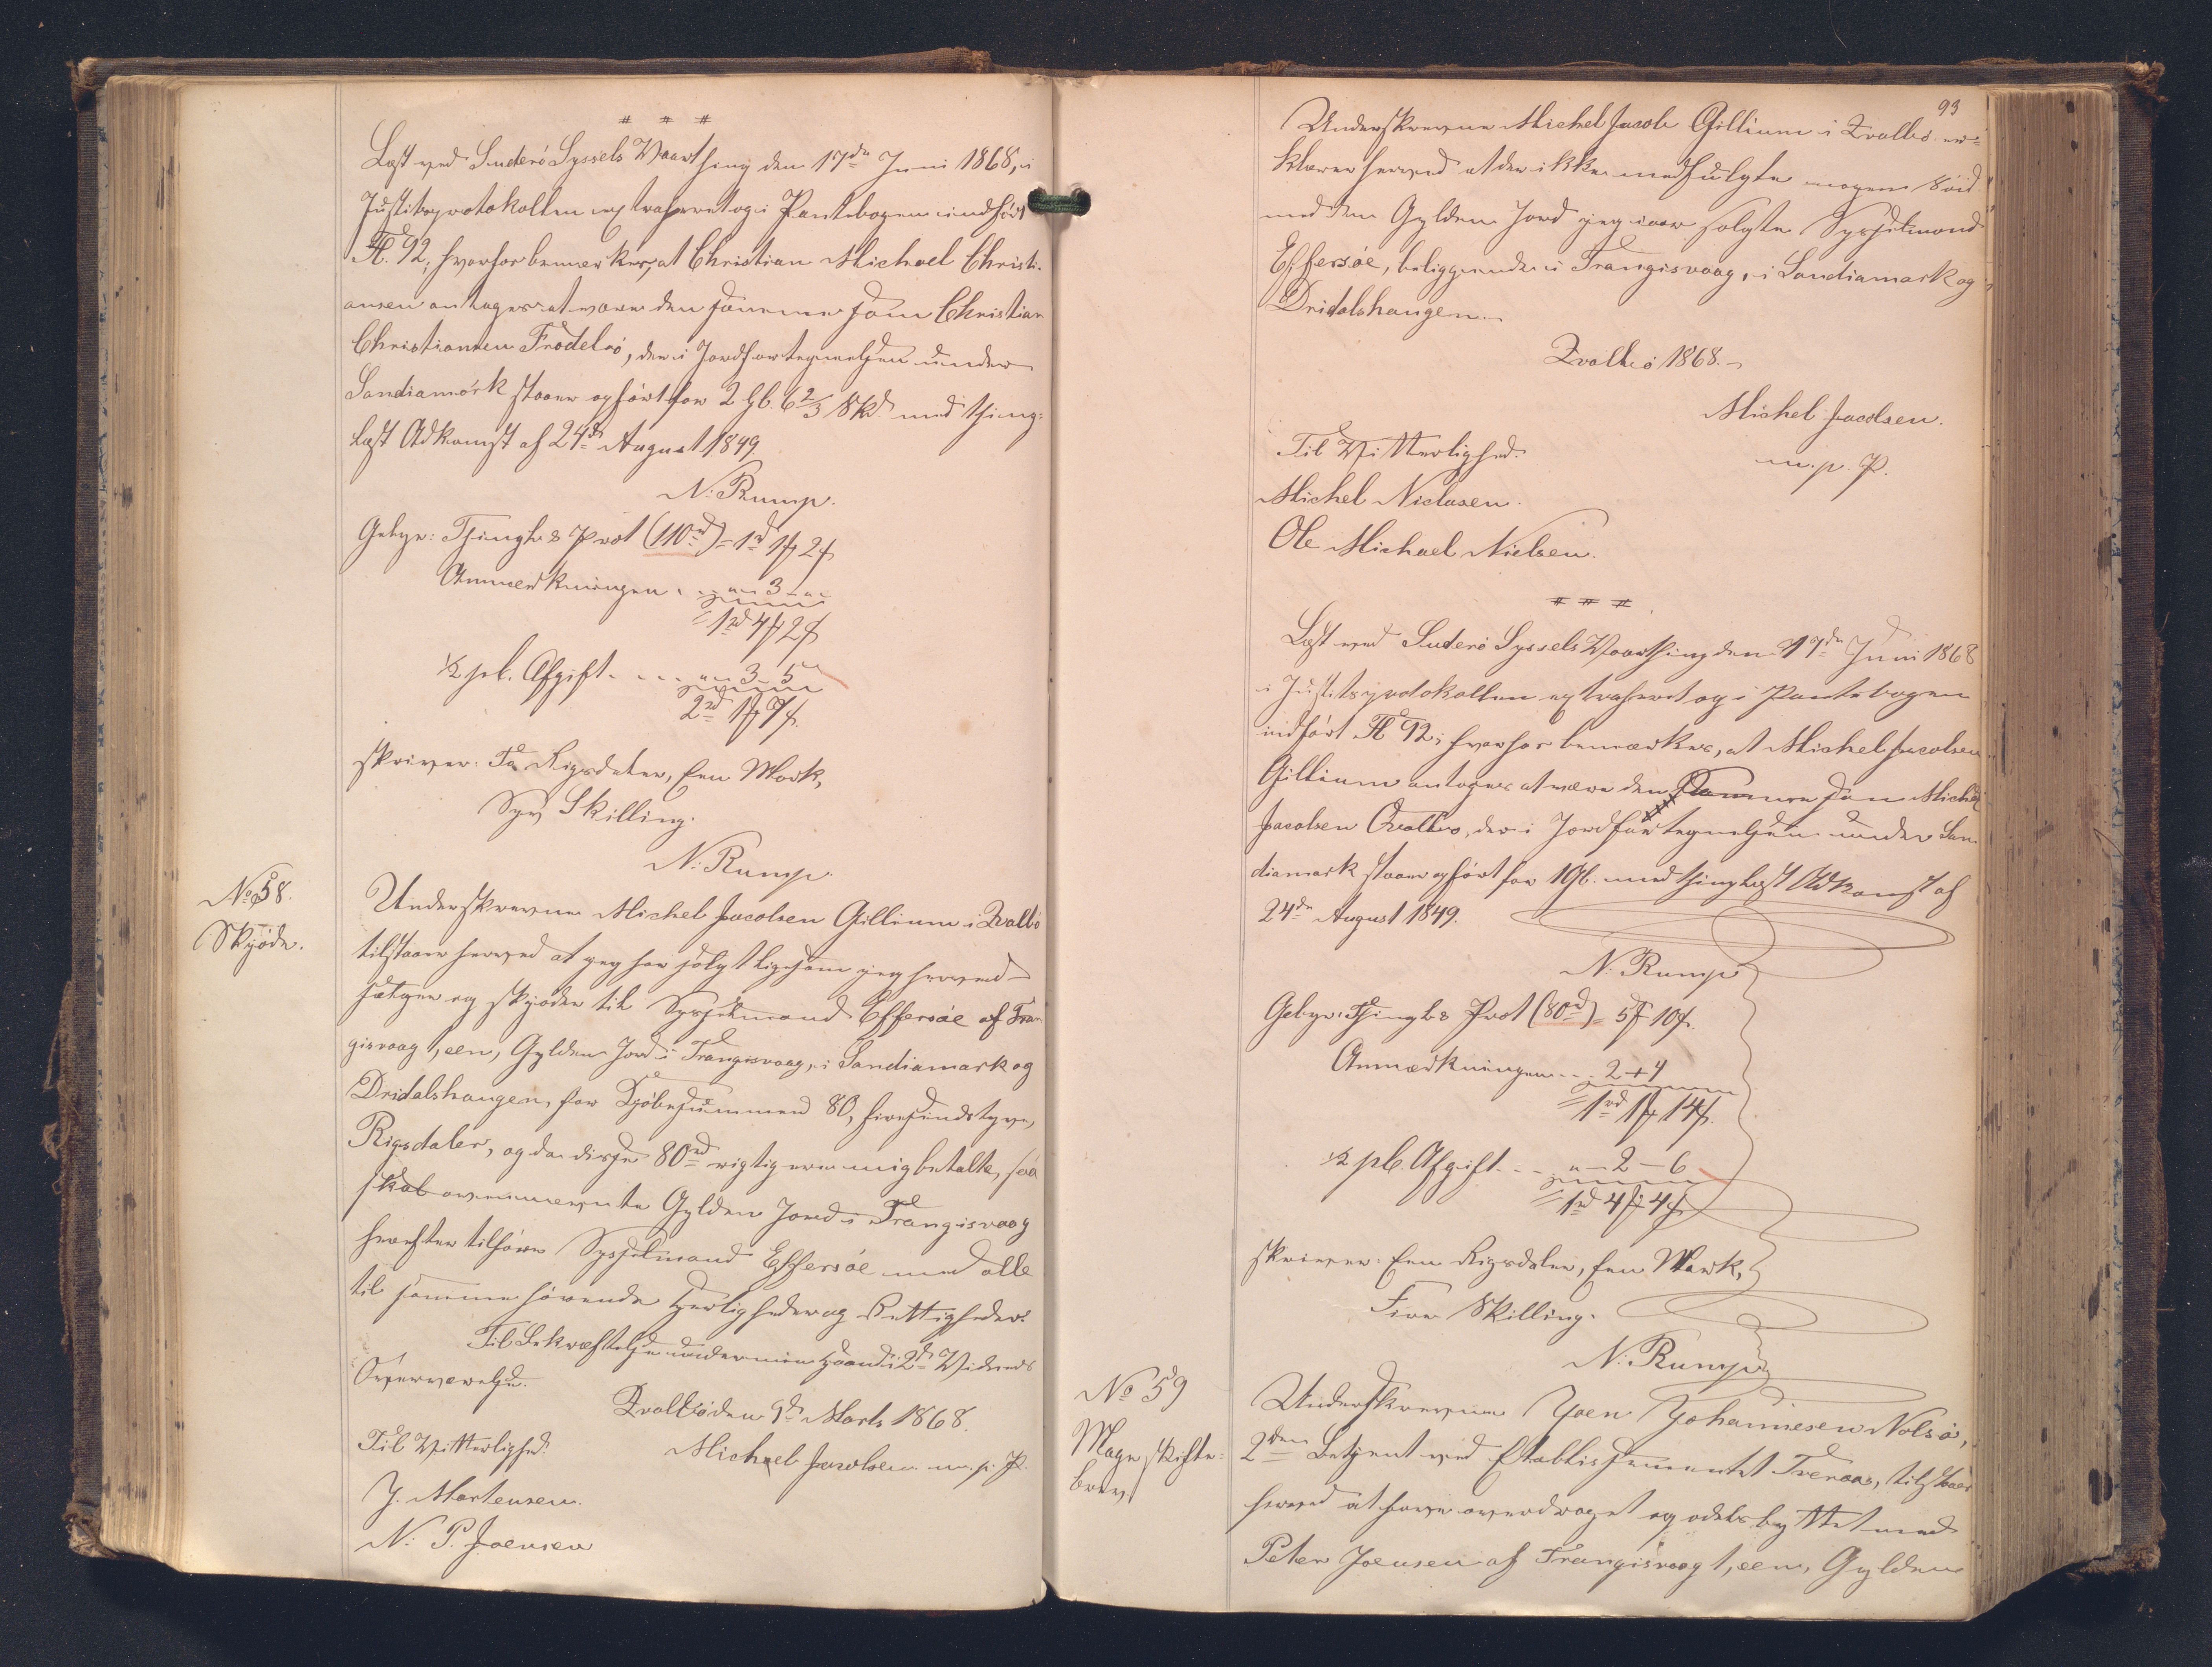 # # #
Læst ved Suderö Syssels Vaarthing den 17de Juni 1868, i
Justitsprotokollen extraheret og i Pantebogen indført
Fl. 92, hvorfor bemærkes, at Christian Michael Christi-
ansen antages at være den samme som Christian
Christiansen Frodebö, der i Jordfortegnelsen under
Sandiamörk staaer opført for 2 Gl. 6 2/3 Skd. med thing-
læst Adkomst af 24de August 1849.
N: Rump.
Gebyr: Thingl. & Prot (110rd) = 1rd 1# 2ß
Anmærkningen . . " - 3 - "
= 1rd 4# 2ß
½ pCt. Afgift . . . " - 3 - 5 "
2rd 1# 7ß.
skriver: To Rigsdaler, Een Mark,
Syv Skilling.
N: Rump.
No 58.
Skjøde.
Underskrevne Michel Jacobsen Gillium i Qvalbö
tilstaaer herved at jeg har solgt ligesom jeg herved
sælger og skjøder til Sysselmand Effersöe af Tran-
gisvaag 1, een, Gylden Jord i Trangisvaag, i Sandiamark og
Dridalshaugen, for Kjøbesummen 80, firesindstyve,
Rigsdaler, og da disse 80rd rigtig ere mig betalte, saa
skal ovennævnte Gylden Jord i Trangisvaag
herefter tilhøre Sysselmand Effersöe med alle
til samme hørende Herligheder og Rettigheder.
Til Bekræftelse under min Haand i 2de Vidners
Overværelse.
Qvalbö den 9de Marts 1868.
Til Vitterlighed Michael Jacobsen m. p. P.
J. Mortensen.
N. P. Joensen
93
Underskrevne Michel Jacob Gillium i Qvalbö er-
klærer herved at der ikke medfulgte nogen Röid
med den Gylden Jord jeg iaar solgte Sysselmand
Effersöe, beliggende i Trangisvaag, i Sandiamark og
Dridalshaugen.
Qvalbö 1868.
Michel Jacobsen.
Til Vitterlighed. m. p. P.
Michel Niclasen.
Ole Michael Nielsen.
# # #
Læst ved Suderö Syssels Vaarthing den 17de Juni 1868
i Justitsprotokollen extraheret og i Pantebogen
indført Fl 92; hvorfor bemærkes, at Michel Jacobsen
Gillium antages at være den samme som Michel
Jacobsen Qvalbö, der i Jordfortegnelsen under San-
diamark staaer opført for 1 Gl. med thinglæst Adkomst af
24de August 1849.
N: Rump
Gebyr: Thingl. & Prot (80rd) = 5# 10ß.
Anmærkningen . . 2 + 4
= 1rd 1# 14ß.
½ pCt. Afgift . . . " - 2 - 6
= 1rd 4# 4ß
skriver: Een Rigsdaler, Een Mark,
Fire Skilling.
N: Rump
No 59
Mageskifte-
brev
Underskrevne Joen Johannesen Nolsö,
2den Betjent ved Etablissementet Tveraae, tilstaaer
herved at have overdraget og odelsbyttet med
Peter Joensen af Trangisvaag 1, een, Gylden